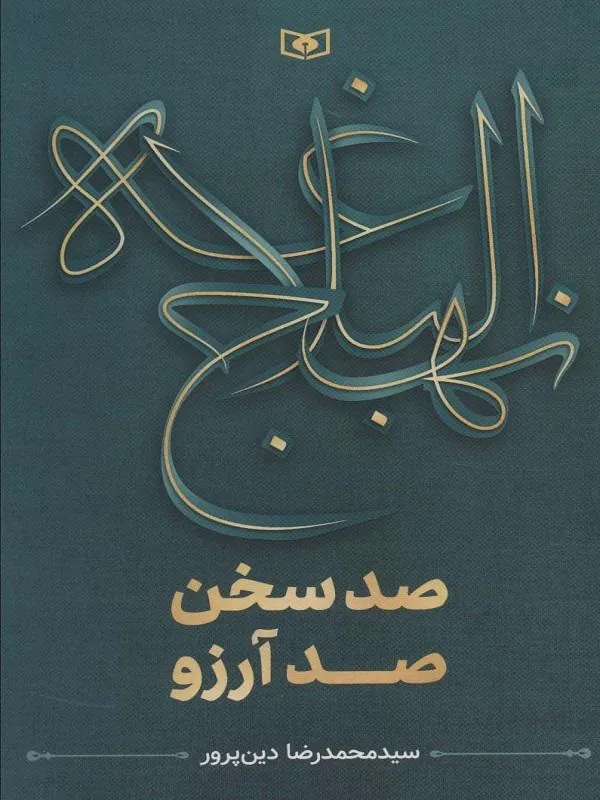 نهج البلاغه
صد سخن
صد آرزو
سیدمحمدرضا دین‌پرور